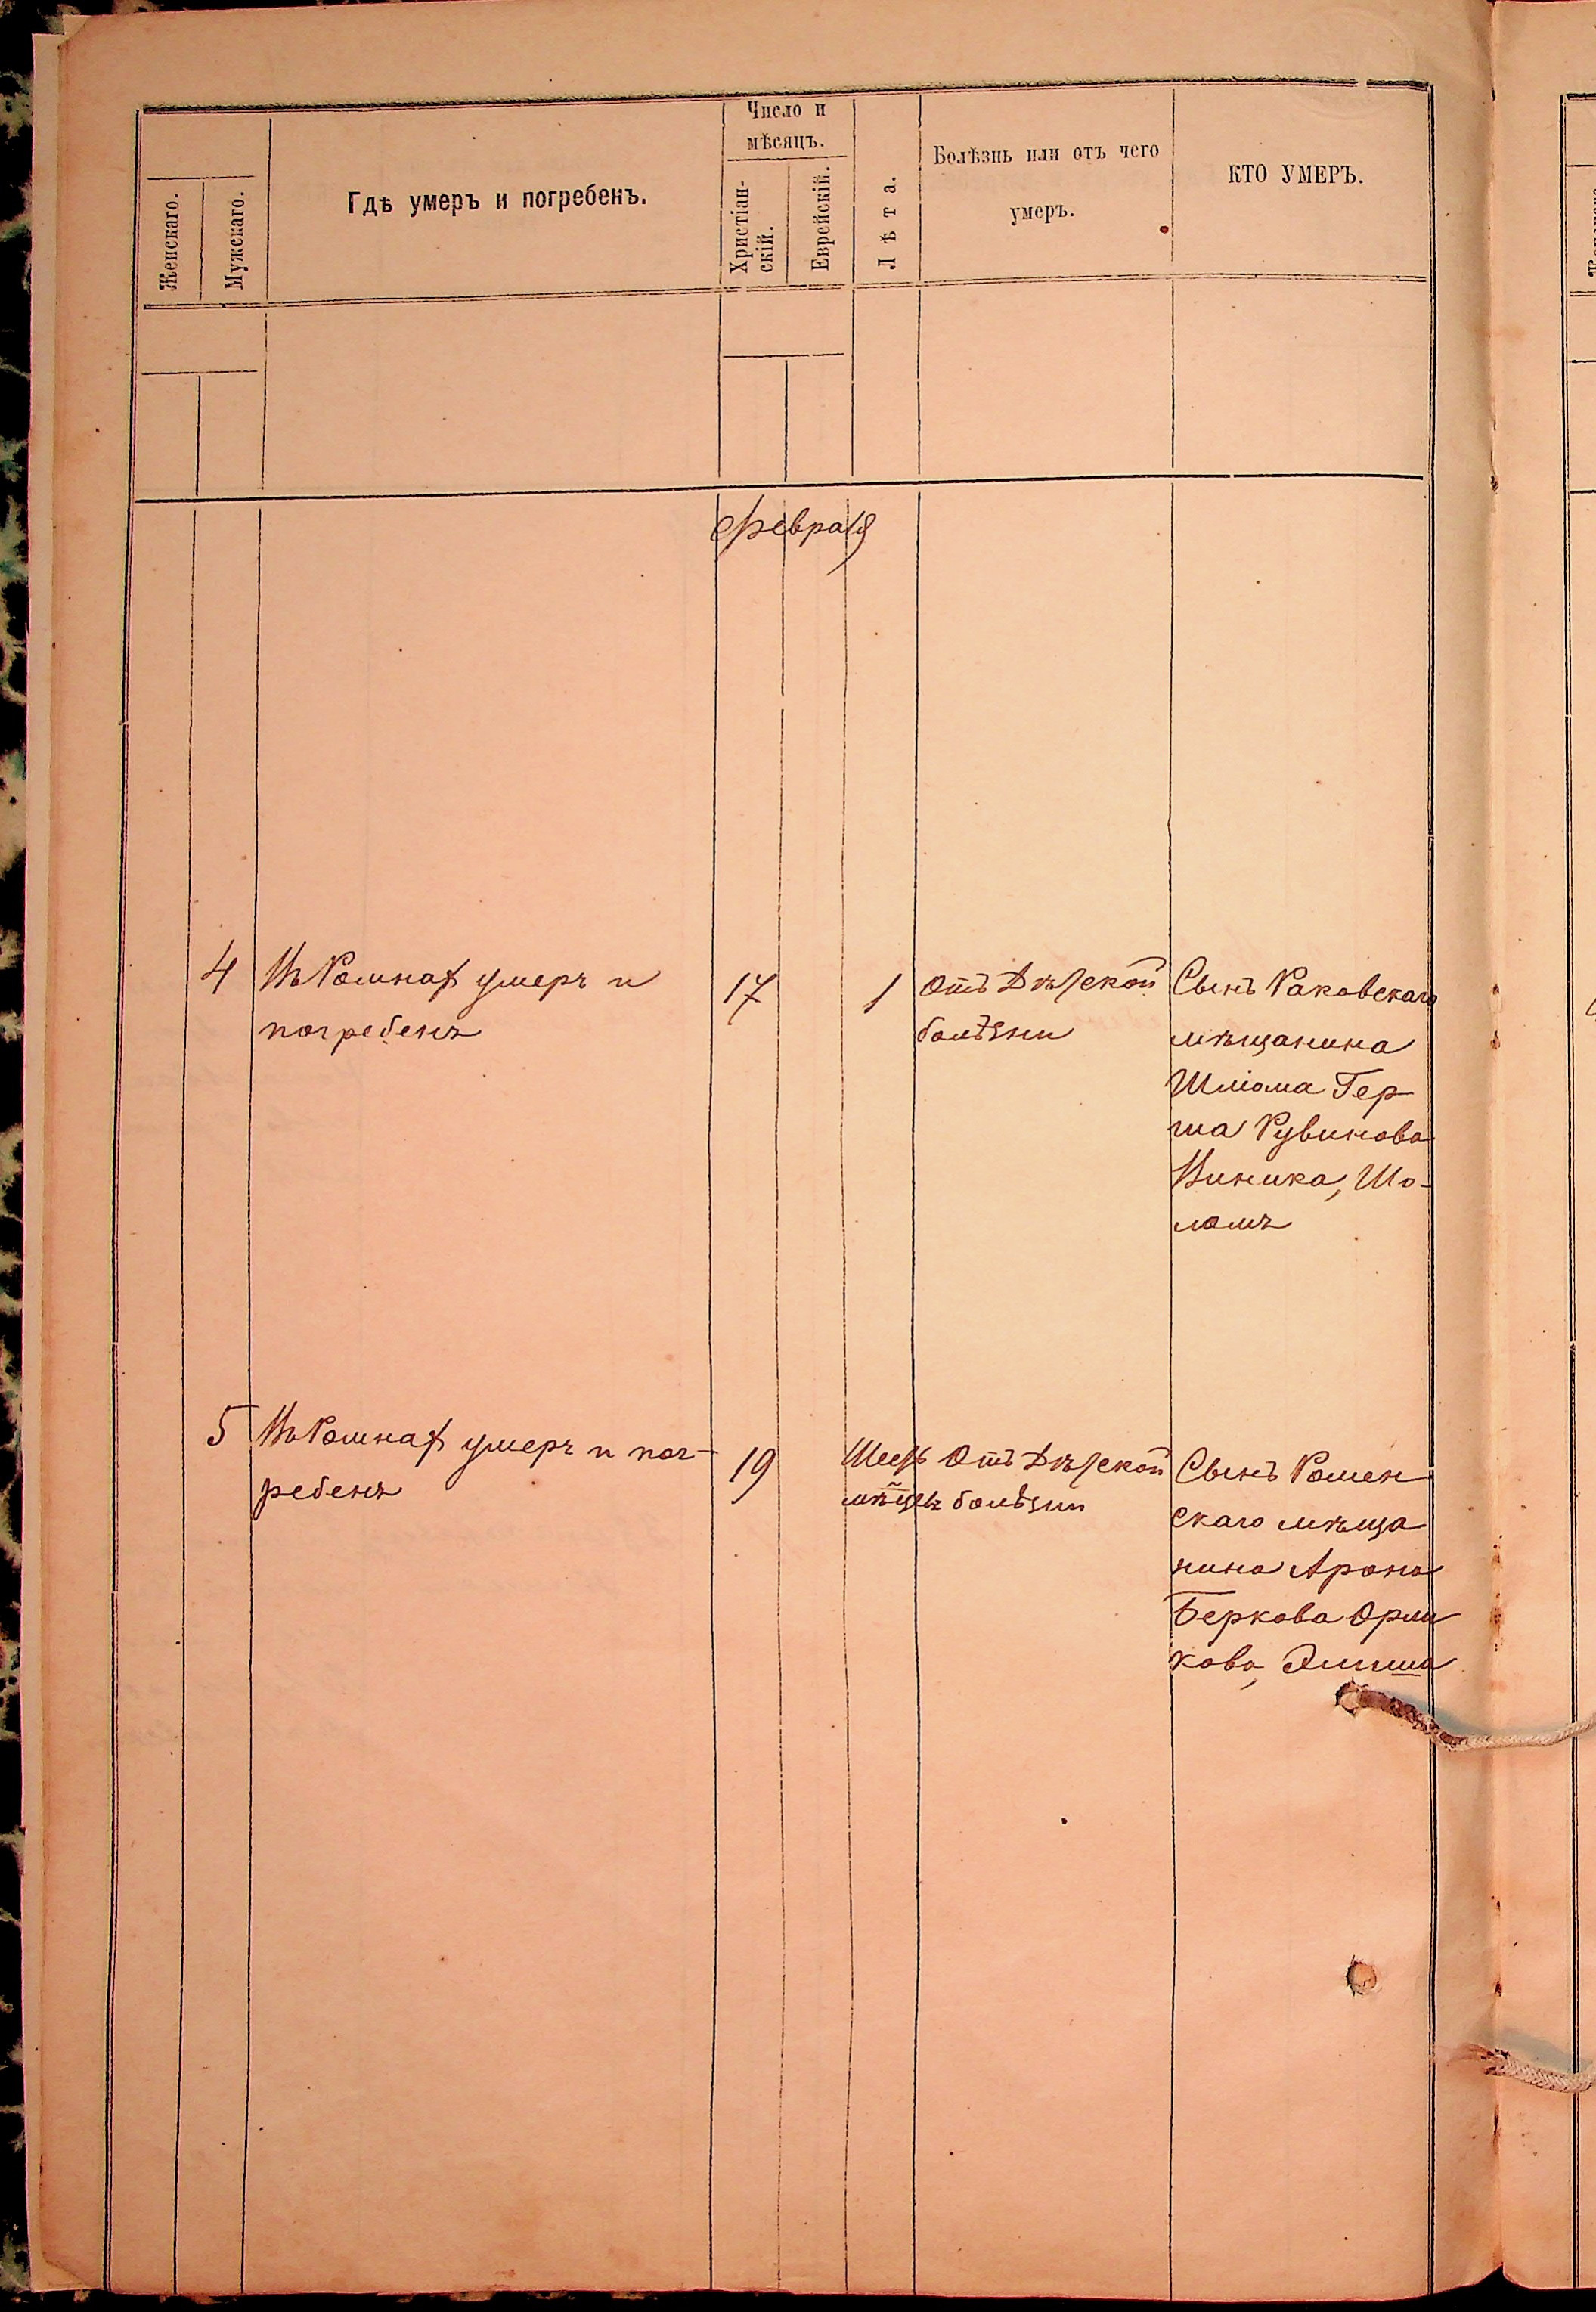 Число и
мѣсяцъ.
Женскаго.
Мужскаго.
Гдѣ умеръ и погребенъ.
Христіан-
скій.
Еврейскій.
Лѣта.
Болѣзнь или отъ чего
умеръ.
КТО УМЕРЪ.
Февраля
4
Въ Ромнах умеръ и
погребенъ
17
1
Отъ Дѣтской
болѣзни
Сынъ Раковскаго
мѣщанина
Шліома Гер
ша Рувинова
Виника, Шо-
ломъ
5
Въ Ромнах умеръ и пог-
ребенъ
19
Шесть
мѣсць
Отъ Дѣтской
болѣзни
Сынъ Ромен
скаго мѣща
нина Арона
Беркова Орли
кова,